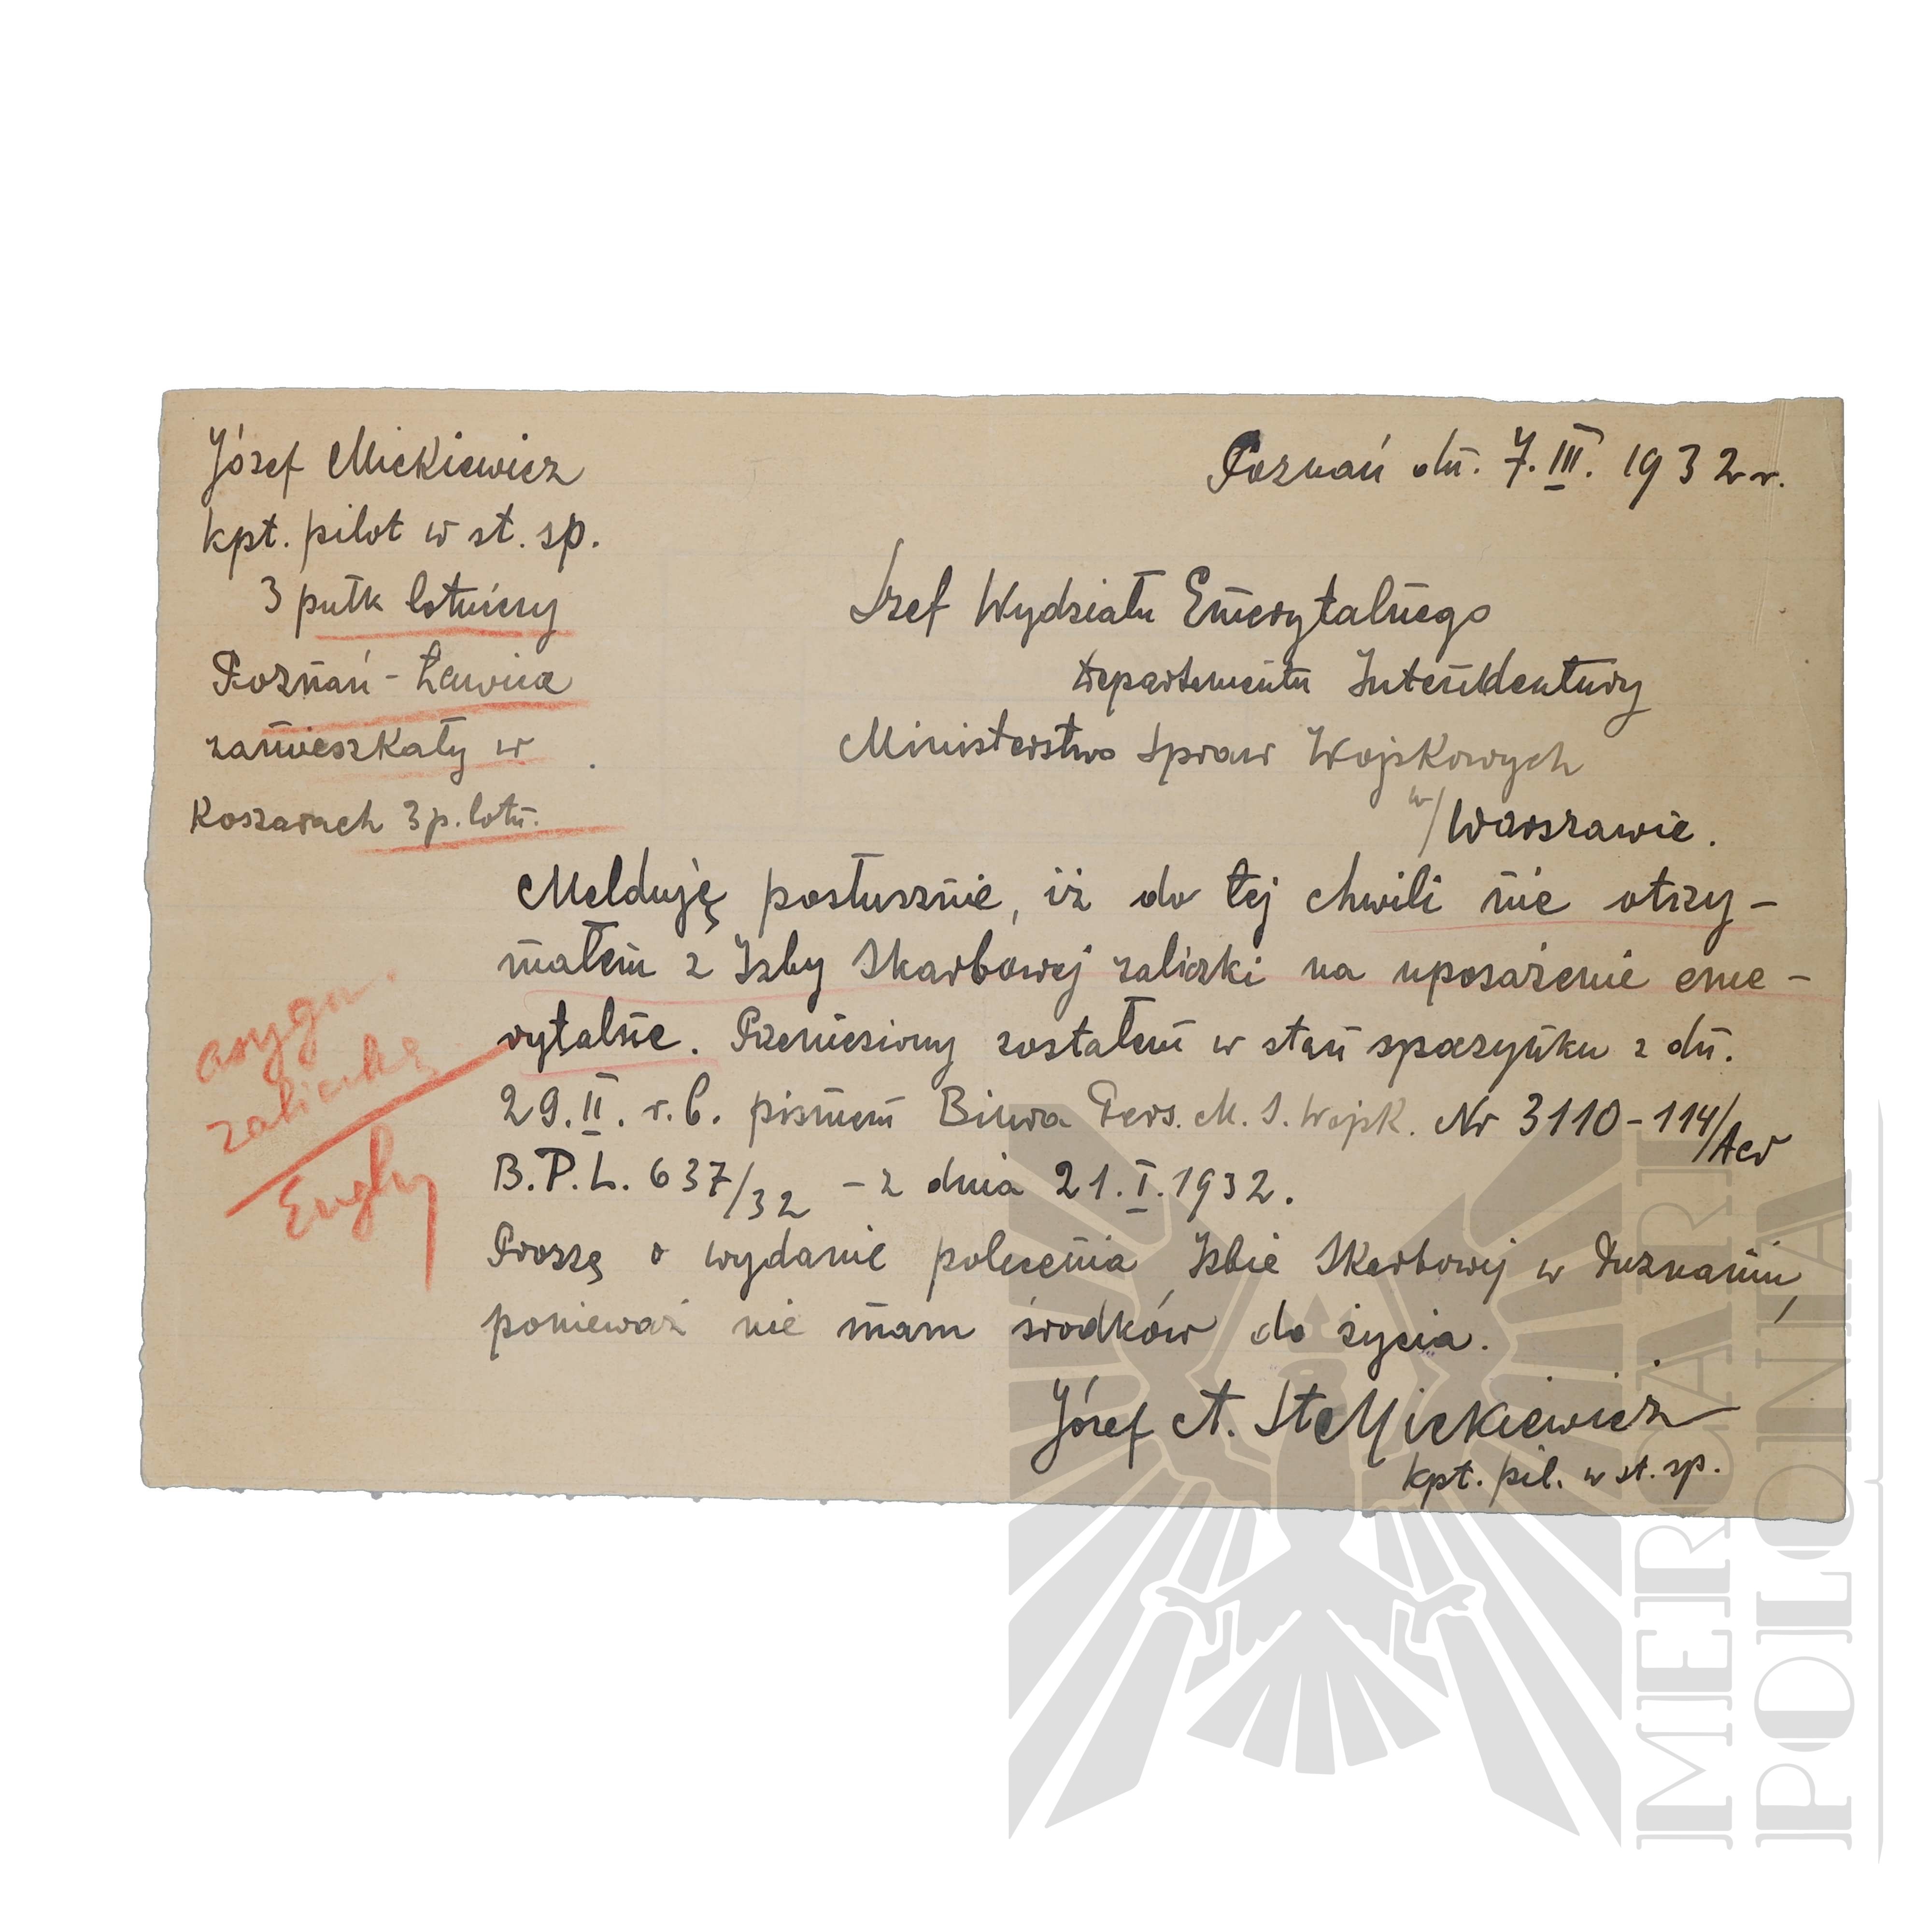 Józef Mickiewicz
kpt. pilot w st. sp.
3 pułk lotniczy
Poznań - Ławica
zamieszkały w
Koszarach 3 p. lotn.
Poznań dn. 7. III. 1932 r.
Szef Wydziału Emerytalnego
Departamentu Intendentury
Ministerstwo Spraw Wojskowych
w/Warszawie.
Melduję posłusznie, iż do tej chwili nie otrzy-
małem z Izby Skarbowej zaliczki na uposażenie eme-
rytalne. Przeniesiony zostałem w stan spoczynku z dn.
29. II. r. b. pismem Biura Pers. M. S. Wojsk. Nr 3110-114/
B.P.L. 637/32 - z dnia 21. I. 1932.
Proszę o wydanie polecenia Izbie Skarbowej w Poznaniu,
ponieważ nie mam środków do życia.
Józef A. St. Mickiewicz
kpt. pil. w st. sp.
asygn.
zaliczkę
IMERCARI
POLONIA